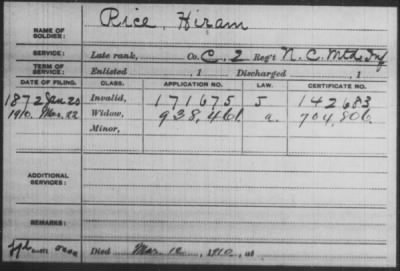 NAME OF SOLDIER: Rice, Hiram
SERVICE: Late rank, Co. C, 2 Reg't N. C. Mtd. Inf
TERM OF SERVICE: Enlisted , 1 Discharged , 1
DATE OF FILING. CLASS. APPLICATION NO. LAW. CERTIFICATE NO.
1872 Jan 20 Invalid, 171675 J 142683
1910. Mar. 22 Widow, 938,461. a. 704,806.
Minor,
ADDITIONAL SERVICES:
REMARKS:
Died Mar. 12, 1910, at